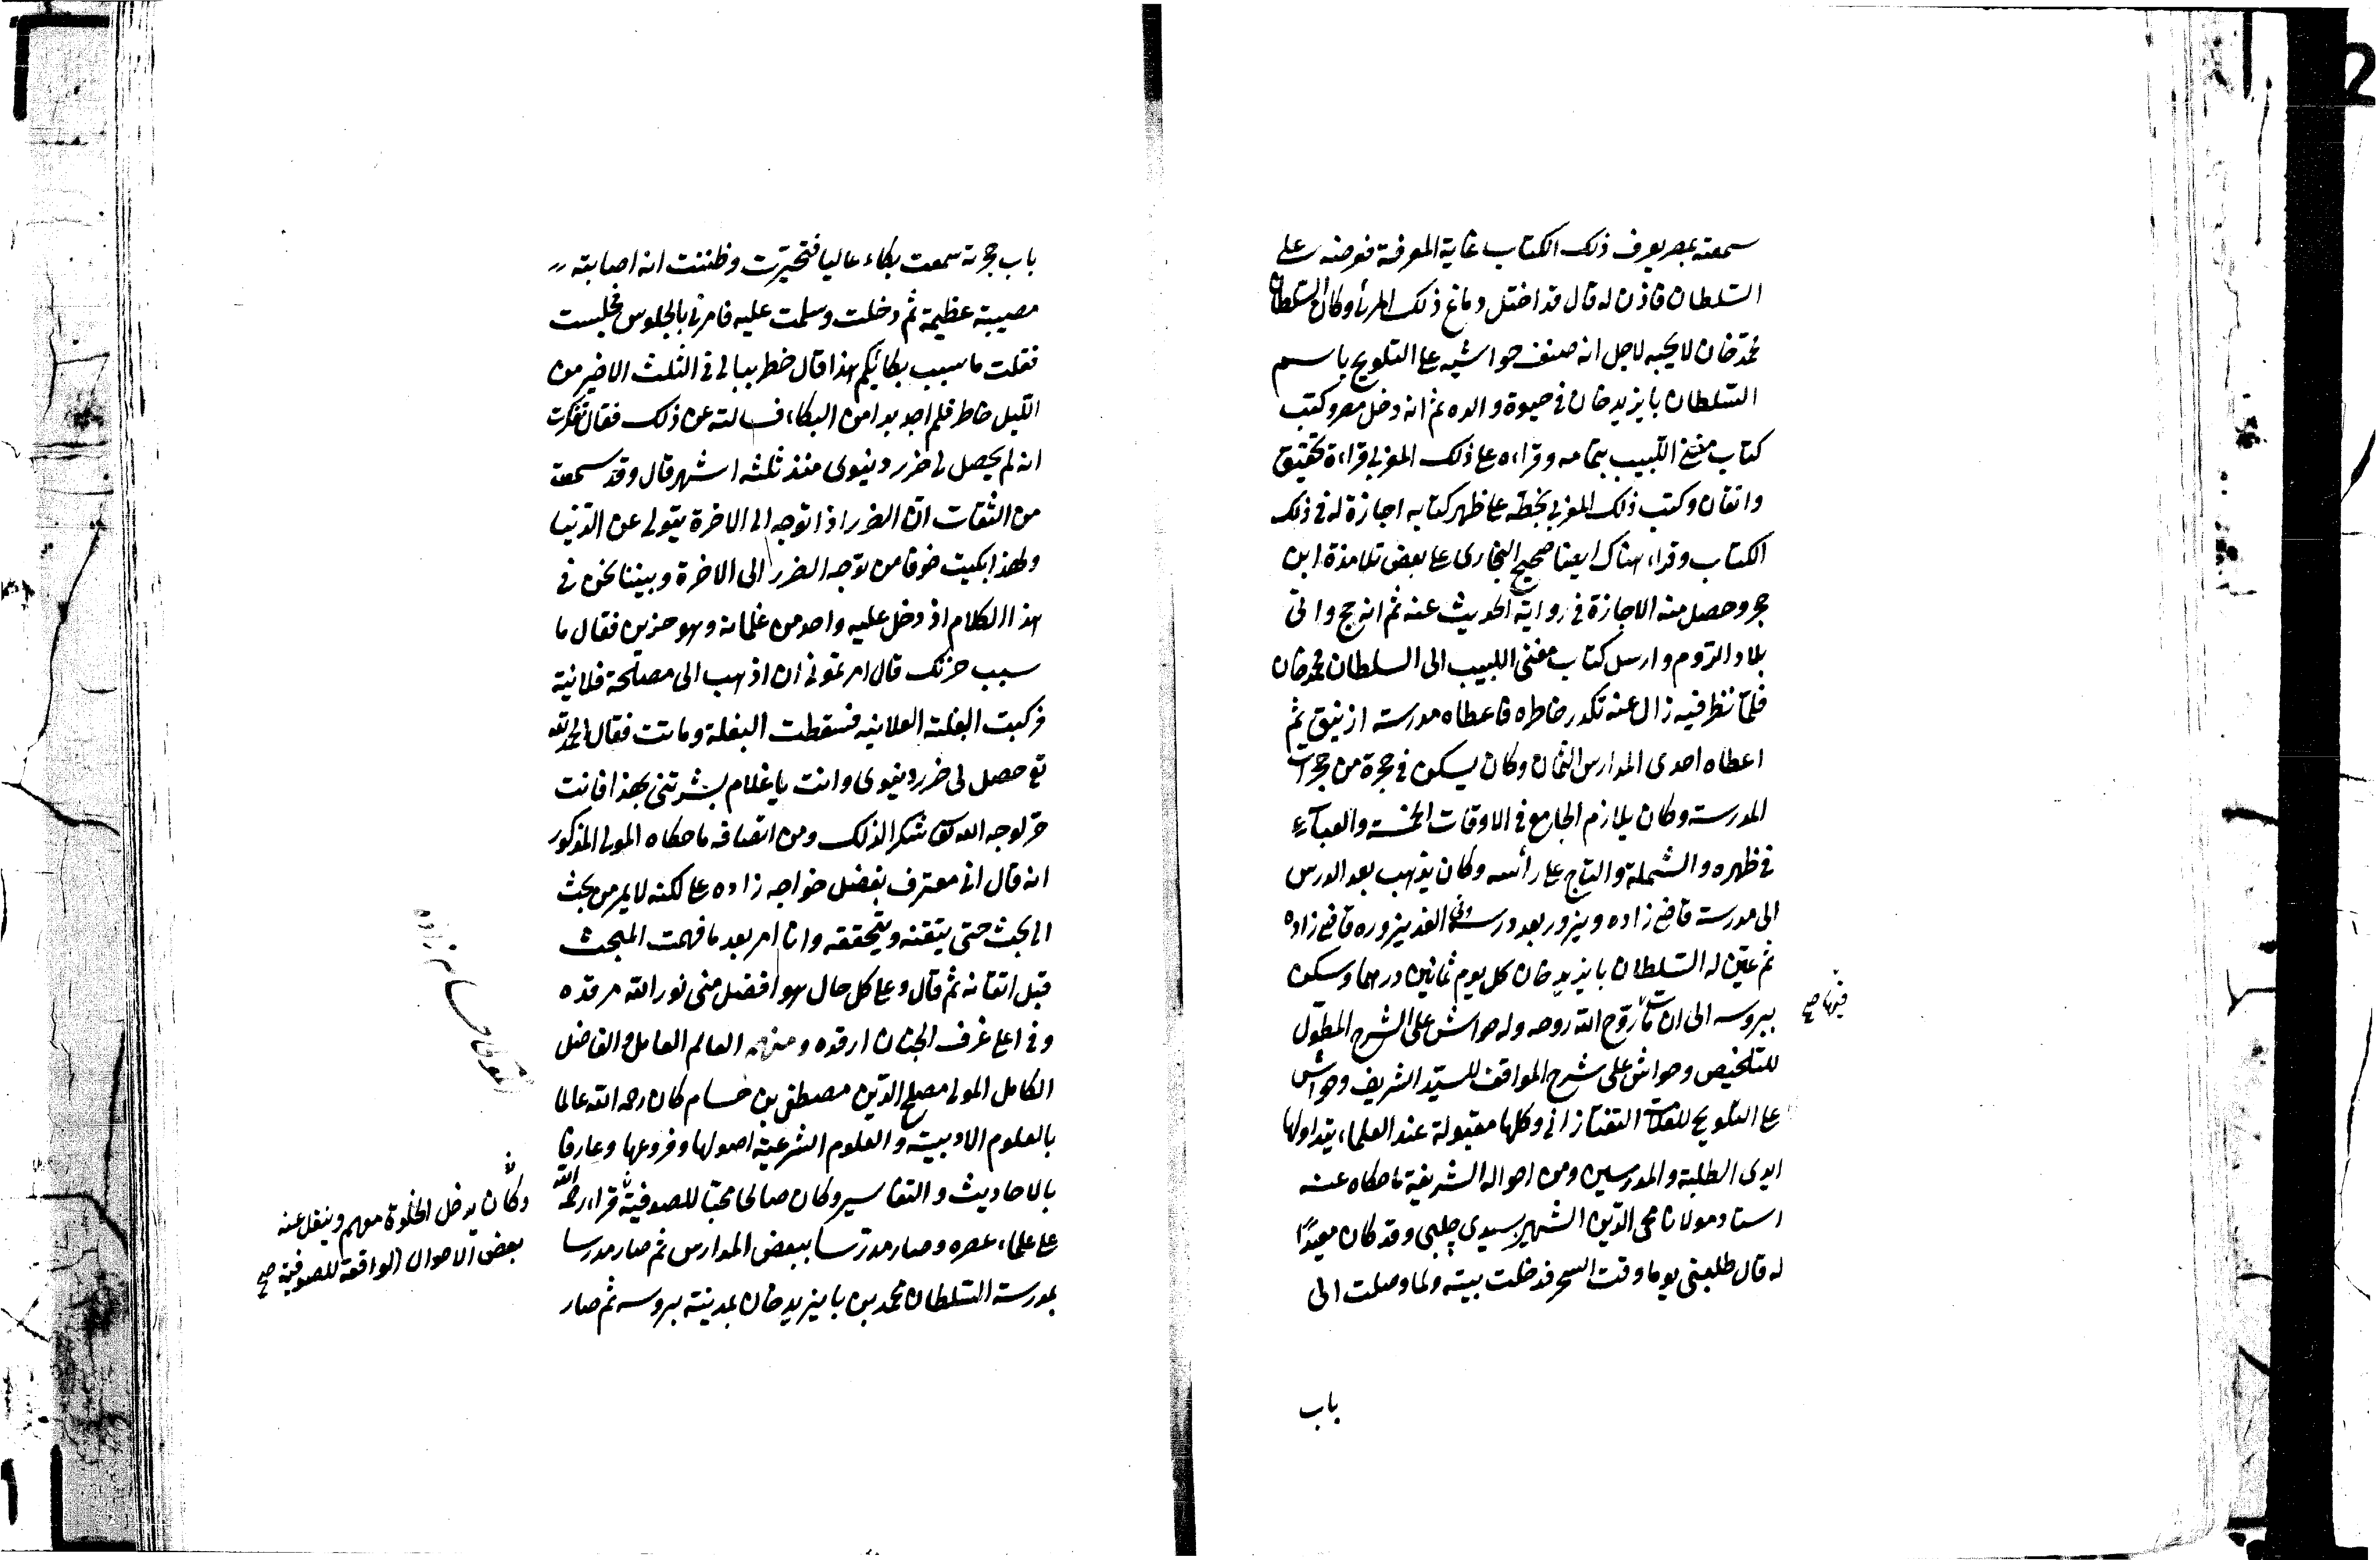 سمعته بمصر يعرف ذلك الكتاب غاية المعرفة فعرضه على
السلطان فاذن له قال قد اختل دماغ ذلك المرأ وكان السلطان
محمد خان لا يحبه لاجل انه صنف حواشيه على التلويح باسم
السلطان بايزيد خان في حيوة والده ثم انه دخل مصر وكتب
كتاب مغني اللبيب بتمامه وقراءه على ذلك المغربي قراءة تحقيق
واتقان وكتب ذلك المغربي بخطه على ظهر كتابه اجازة له في ذلك
الكتاب وقراء هناك ايضا صحيح البخاري على بعض تلامذة ابن
حجر وحصل منه الاجازة في رواية الحديث عنه ثم انه حج واتى
بلاد الروم وارسل كتاب مغني اللبيب الى السلطان محمد خان
فلما نظر فيه زال عنه تكدر خاطره فاعطاه مدرسة ازنيق ثم
اعطاه احدى المدارس الثمان وكان يسكن في حجرة من حجرات
المدرسة وكان يلازم الجامع في الاوقات الخمسة والعباء
في ظهره والشملة والتاج على رأسه وكان يذهب بعد الدرس
الى مدرسة قاضي زاده ويزور بعد درسه وفي الغد يزوره قاضي زاده
ثم عين له السلطان بايزيد خان كل يوم ثمانين درهما وسكن
ببروسه الى ان مات روح الله روحه وله حواش على الشرح المطول
فيها صح
للتلخيص وحواش على شرح المواقف للسيد الشريف وحواش
على التلويح للعلامة التفتازاني وكلها مقبولة عند العلماء يتداولها
ايدى الطلبة والمدرسين ومن احواله الشريفة ما حكاه عنه
استاد مولانا محي الدين الشهير بسيدي چلبي وقد كان معيدًا
له قال طلبني يوما وقت السحر فدخلت بيته ولما وصلت الى
باب
باب حجرته سمعت بكاء عاليا فتحيرت وظننت انه اصابته
مصيبة عظيمة ثم دخلت وسلمت عليه فامرني بالجلوس فجلست
فقلت ما سبب بكائكم هذا قال خطر ببالي في الثلث الاخير من
الليل خاطر فلم اجد بدا من البكاء فسالته عن ذلك فقال تفكرت
انه لم يحصل لي ضرر دنيوى منذ ثلثه اشهر قال وقد سمعت
من الثقات ان الضرر اذا توجه الى الاخرة يتولى عن الدنيا
ولهذا بكيت خوفا من توجه الضرر الى الاخرة وبيننا نحن في
هذا الكلام اذ دخل عليه واحد من غلمانه وهو حزين فقال ما
سبب حزنك قال امرتموني ان اذهب الى مصلحة فلانية
فركبت البغلة الفلانيه فسقطت البغلة وماتت فقال الحمد لله
تع حصل لى ضرر دنيوى وانت يا غلام بشرتني بهذا فانت
حر لوجه الله تعالى شكرا لذلك ومن انصافه ما حكاه المولى المذكور
انه قال اني معترف بفضل خواجه زاده على لكنه لا يمر من بحث
الى بحث حتى يتقنه ويتحققه وانا امر بعد ما فهمت المبحث
قبل اتقانه ثم قال وعلى كل حال هو افضل منى نور الله مرقده
وفي اعلى غرف الجنان ارقده ومنهم العالم العامل والفاضل
الكامل المولى مصلح الدين مصطفى بن حسام كان رحمه الله عالما
بالعلوم الادبية والعلوم الشرعية اصولها وفروعها وعارفا
بالاحاديث والتفاسير وكان صالحا محبا للصوفية قراء رحمه الله
على علماء عصره وصار مدرسا ببعض المدارس ثم صار مدرسا
بمدرسة السلطان محمد بن بايزيد خان بمدينة بروسه ثم صار
وكان يدخل الخلوة معهم وينقل عنه
بعض الاحوال الواقعة للصوفية صح